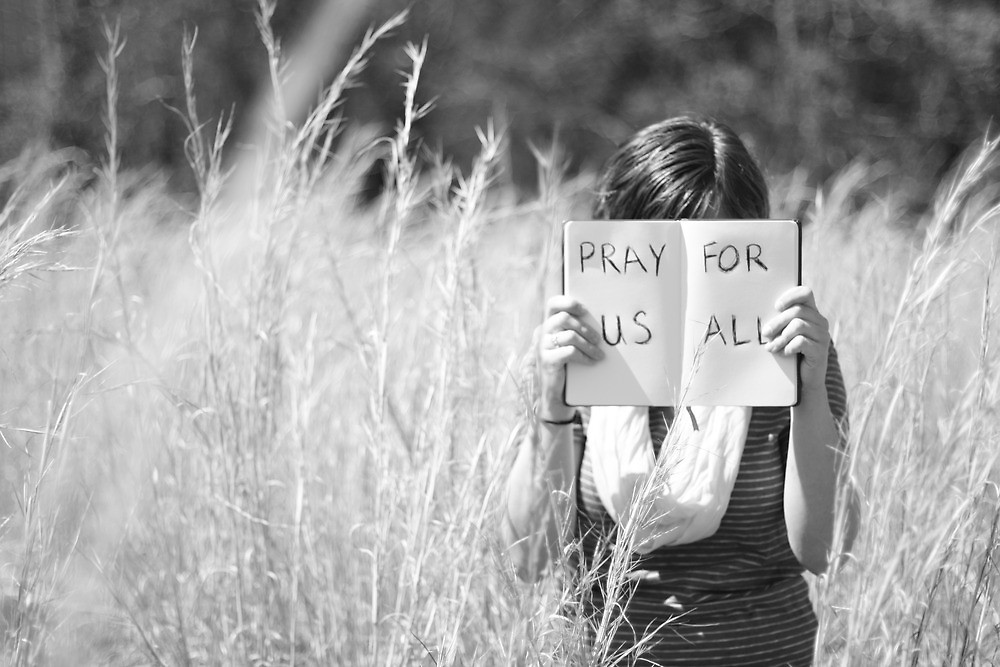 PRAY FOR
US ALL